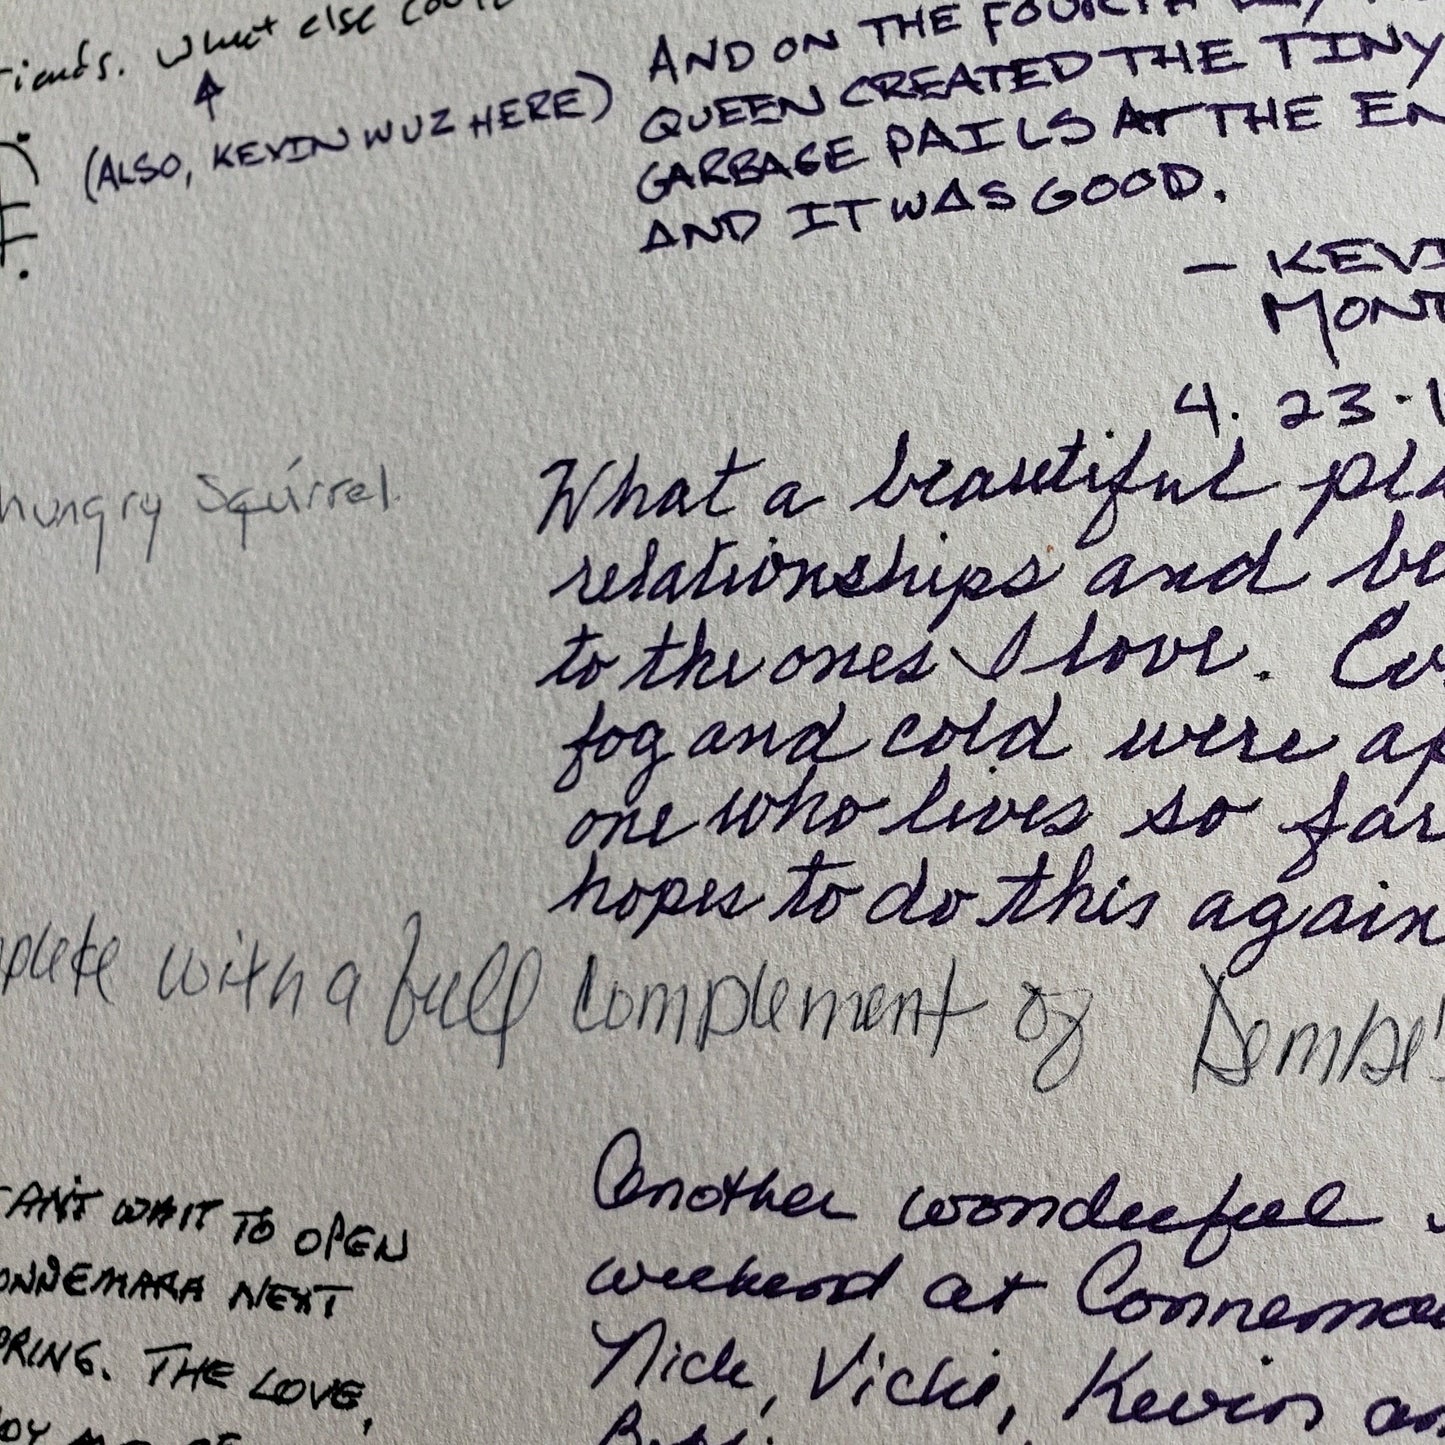 What else
(ALSO, KEVIN WUZ HERE)
AND ON THE FOURTH
QUEEN CREATED THE TINY
GARBAGE PAILS AT THE
AND IT WAS GOOD.
— KEVI
MONT
4.23.1
hungry Squirrel.
What a beautiful
relationships and
to the ones I love.
fog and cold were
one who lives so far
hopes to do this again
with a full complement of
CAN'T WAIT TO OPEN
CONNEMARA NEXT
SPRING. THE LOVE,
Another wonderful
weekend at
Nick, Vicki, Kevin